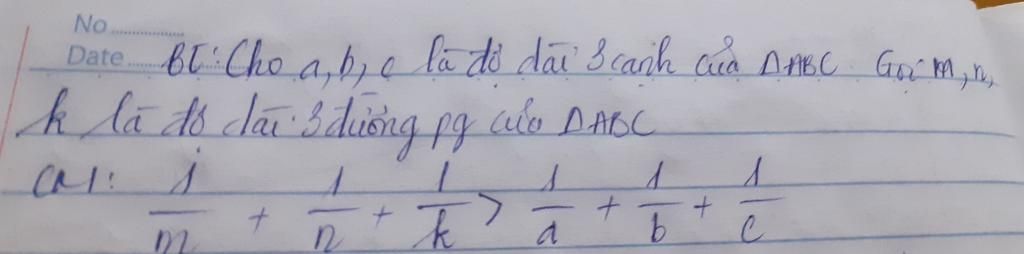 No
Date BT: Cho a, b, c là độ dài 3 cạnh của ΔABC Gọi m, n,
k là độ dài 3 đường pg của ΔABC
CM: 1/m + 1/n + 1/k > 1/a + 1/b + 1/c